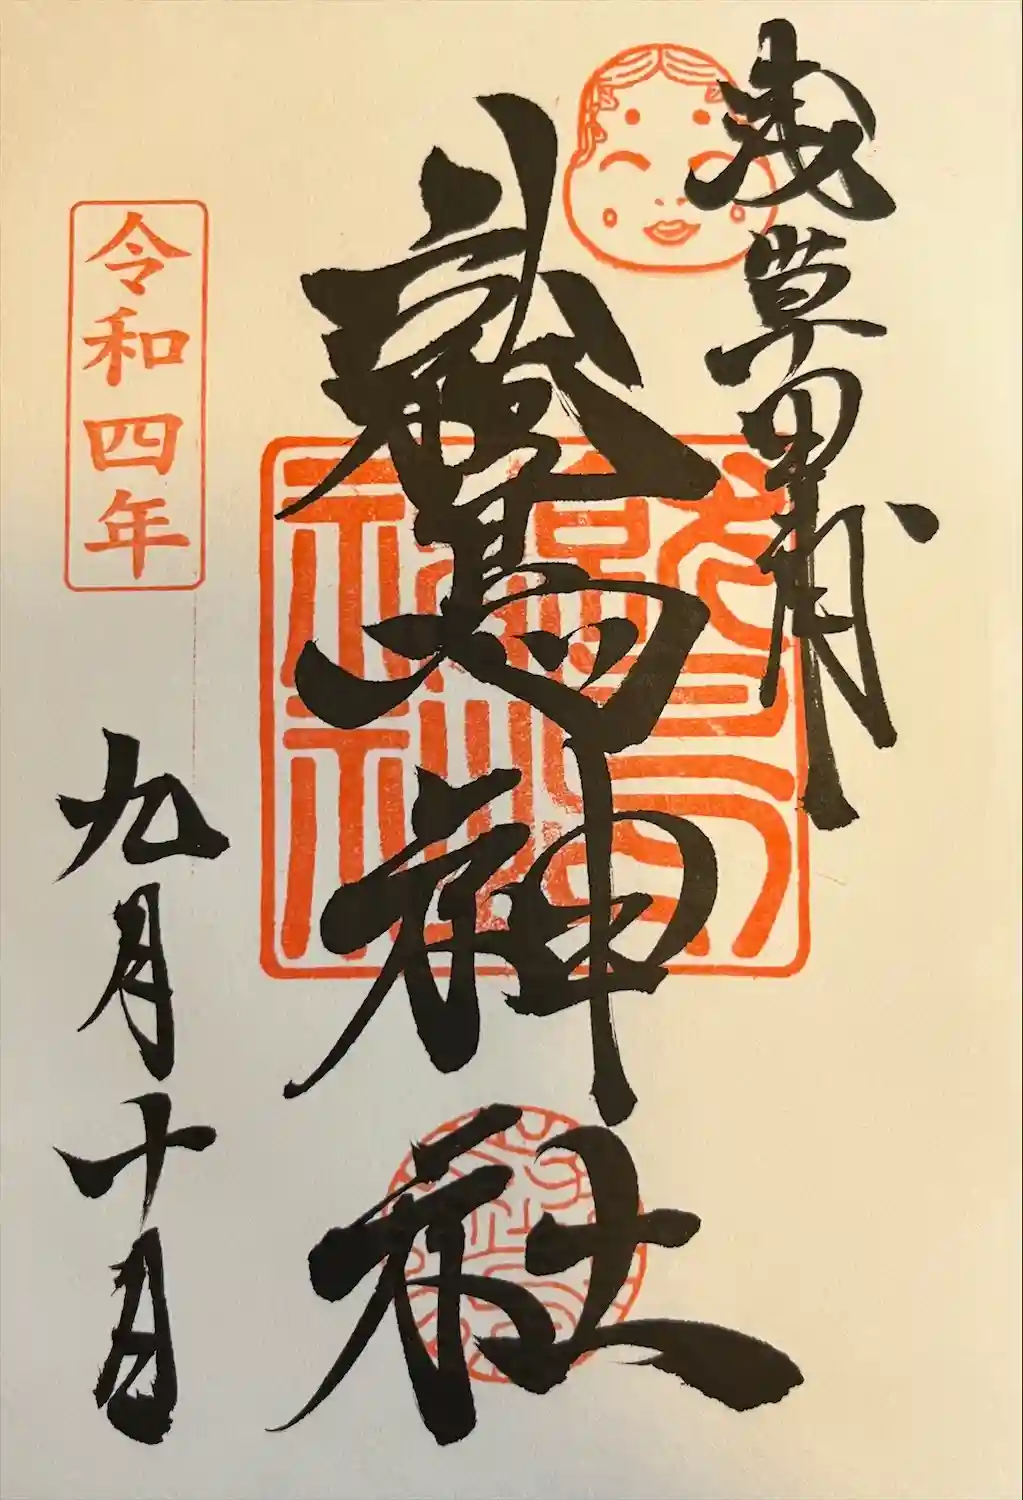 浅草田甫
鷲神社
令和四年
九月十日